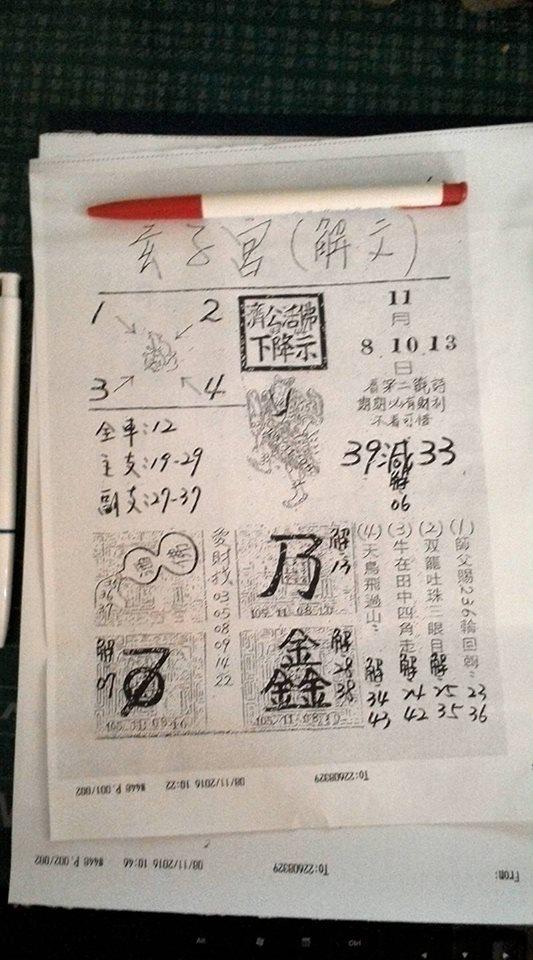 玄子宮(解文)
1 2
3 4
濟公活佛
下降示
11
月
8.10.13
日
看第二籤詩
期期必有財利
不看可惜
39 33
06
全車:12
主支:19-29
副支:27-37
36
37
發財找
03
05
08
09
14
22
乃
解
13
105.11.08.10
解
07
金
金金
解
28
38
(1)師父賜236輪回
23
36
(2)双龍吐珠三眼目
解
25
35
(3)牛在田中四角走
解
24
42
(4)天鳥飛過山
解
34
43
To:22608329
08/11/2016 10:22
#448 P.001/002
From:
To:22608329
08/11/2016 10:46
#448 P.002/002
Alt
Ctrl